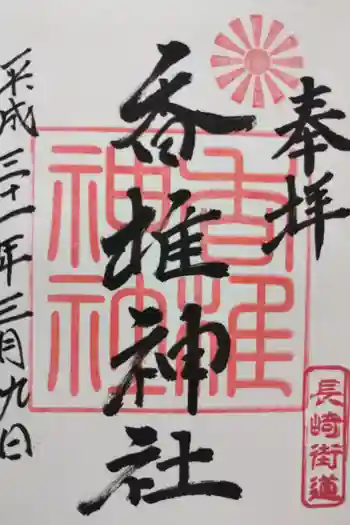 奉拝
香椎神社
平成三十一年三月九日
長崎街道